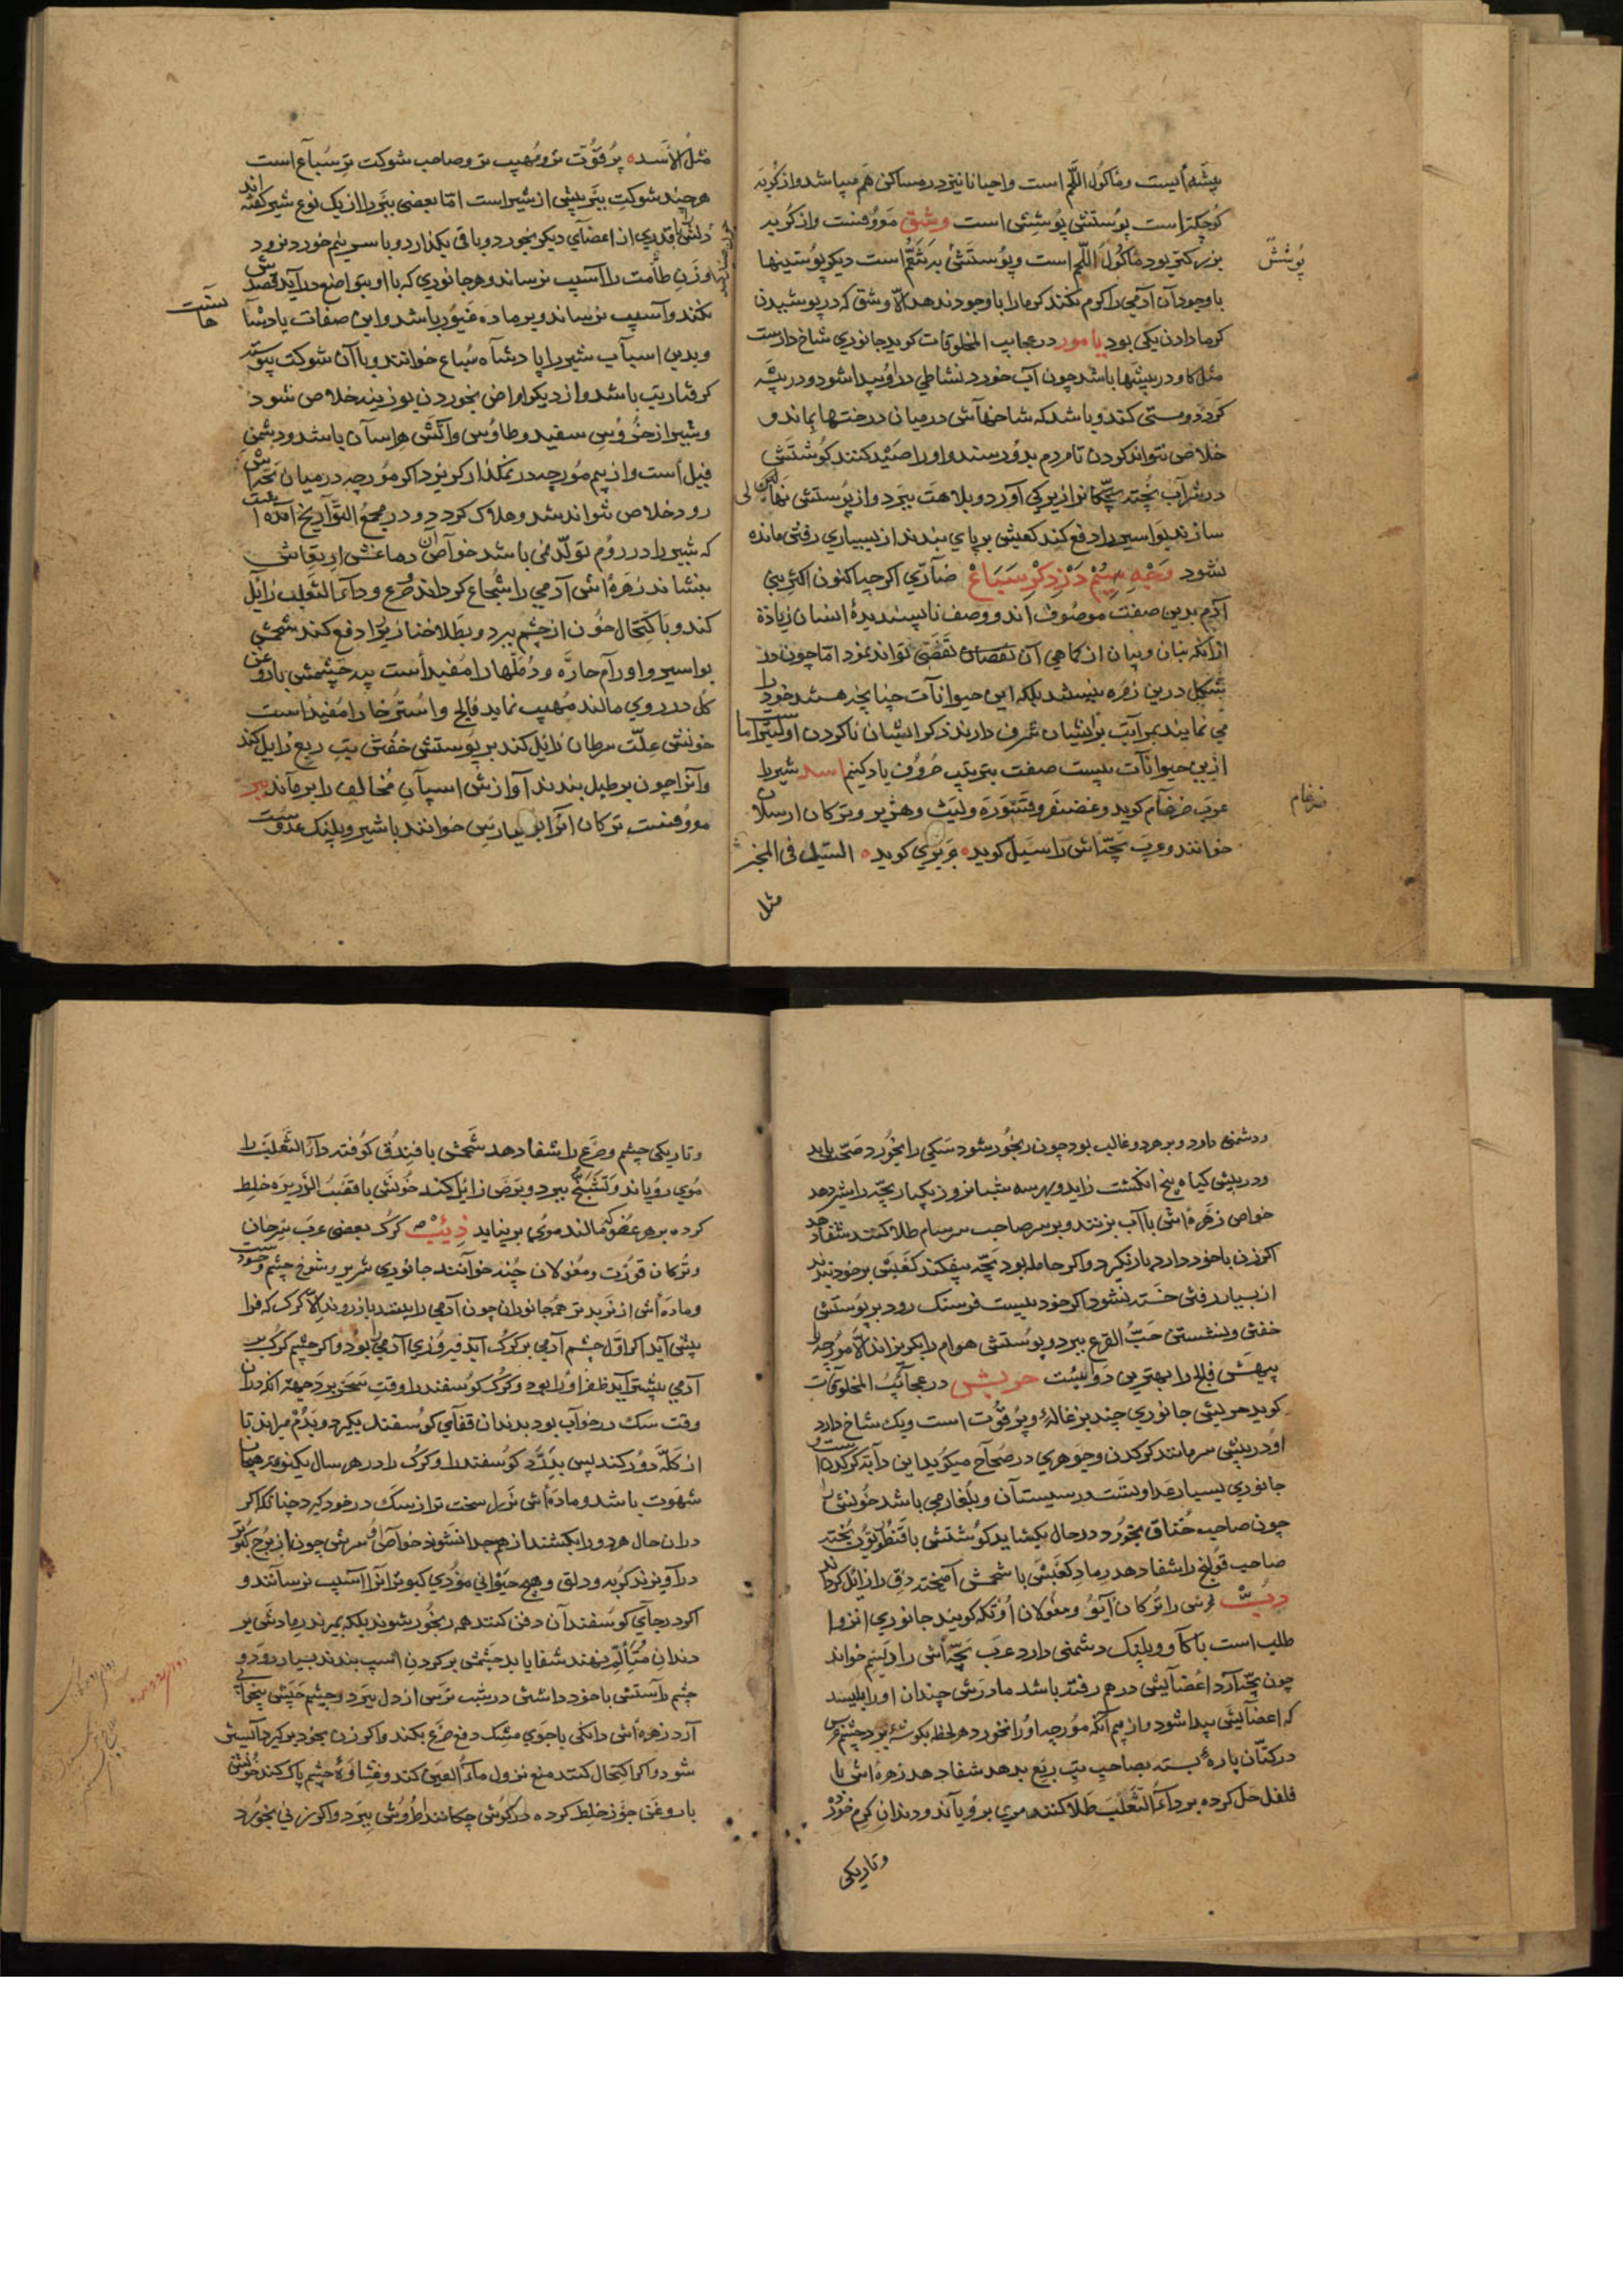 بیشه ایست و ماکول اللحم است و احیانا نیز در مساکن هم میباشد و از کربه
کوچکتر است پوستش پوششی است وشق معروفست و از کربه
بزرکتر بود ماکول اللحم است و پوستش دیکر پوستینها
با وجود آن آدمی را کرم نکند کرما را با وجود ندهد الا وشق که در پوشیدن
کرما دادن یکی بود یامور در عجایب المخلوقات کوید جانوری شاخ دارست
مثل کاو در بیشها باشد چون آب خورد نشاطی در او پیدا شود و در بیشه
کردد و مستی کند و باشد که شاخهاش در میان درختها بماند و
خلاص نتواند کردن تا مردم بدو رسند و او را صید کنند کوشتش
در شراب پخته بچکانرا زیرکی آورد و بلاهت ببرد و از پوستش نهالی
سازند بواسیر را دفع کند کعبش بر پای بندند از بسیاری رفتن مانده
نشود وجه سیم در ذکر سباع ضاری اکرچه اکنون اکثر بنی
آدم بدین صفت موصوف اند و وصف ناپسندیدۀ انسان زیادۀ
از آنکه بنان و بیان از کماهی آن تواند نمود اما چون در
شکل درین زمره نیستند بلکه این حیوانات چنانچه هستند خود را
می نمایند بمراتب بر ایشان شرف دارند ذکر ایشان ناکردن اولیتر اما
ازین حیوانات بیست صفت بترتیب حروف یاد کنیم اسد شیر را
عرب ضرغام کوید و غضنفر و قسوره و لیث و هزبر و ترکان ارسلان
خوانند و عرب بچه اش را شبل کوید حریری کوید الشبل فی المخبر
مثل
پوشش
ضرغام
مثل الاسد پر قوت تر و مهیب تر و صاحب شوکت تر سباع است
هر چند شوکت ببر بیش از شیر است اما بعضی ببر را از یک نوع شیر کفته اند
دلش با قدری از اعضای دیکر بخورد و باقی بکذارد و با سر نیم خورد نرود
و زن طامث را آسیب نرساند و هر جانوری که با او بتواضع در آید قصدش
نکند و آسیب نرساند و بر ماده غیور باشد و این صفات پادشا
هانست
و بدین اسباب شیر را پادشاه سباع خوانند و با آن شوکت پیوسته
کرفتار تب باشد و از دیکر امراض بخوردن بوزینه خلاص شود
و شیر از خروس سفید و طاوس و آتش هراسان باشد و دشمن
فیل است و از بیم مورچه در نمکزار کریزد اکر مورچه در میان بچهاش
رود خلاص نتواند شد و هلاک کردد و در مجمع التواریخ آمده است
که شیر را در روم تولد نمی باشد خواص آن دماغش ارتعاش
بنشاند زهره اش آدمی را شجاع کرداند صرع و داء الثعلب زایل
کند و باکتحال خون از چشم ببرد و بطلا خنازیر را دفع کند شحمش
بواسیر و اورام حاره و دملها را مفید است پیه چشمش با روغن
کل در روی مالند مهیب نماید فالج و استرخا را مفید است
خونش علت سرطان زائل کند بر پوستش خفتن تب ربع زایل کند
و آنرا چون بر طبل بندند آوازش اسپان مخالف را برماند ببر
معروفست ترکان آنرا یبارس خوانند با شیر و پلنک عدوست
و دشمنی دارد و بر هر دو غالب بود چون رنجور شود سکی را بخورد صحت یابد
و در بیش کیاه پنج انکشت زاید و بهر سه شبانروز یکبار بچه را شیر دهد
خواص زهره اش با آب بزنند و بر سر صاحب سرسام طلا کنند شفا دهد
اکر زن با خود دارد بار نکیرد و اکر حامله بود بچه بیفکند کعبش بر خود بندند
از بسیار رفتن خسته نشود اکر خود بیست فرسنک رود بر پوستش
خفتن و نشستن حب القرع ببرد و پوستش هوام را بکریزاند الا مورچه را
پیهش فالج را بهترین دوائیست حریش در عجائب المخلوقات
کوید حریش جانوری چند بزغاله و پر قوت است و یک شاخ دارد
او در پیش سر مانند کرکدن و جوهری در صحاح میکوید این دابه کرکدنست و
جانوری بسیار عداوتست در سیستان و بلغار می باشد خونش را
چون صاحب خناق بخورد در حال بکشاید کوشتش با قنطوریون پخته
صاحب قولنج را شفا دهد رماد کعبش با شحمش آمیخته دق را زائل کرداند
دب خرس را ترکان آیو و مغولان اوتکه کویند جانوری انزوا
طلب است با کاو و پلنک دشمنی دارد عرب بچه اش را دیسم خواند
چون بچه آرد اعضایش در هم رفته باشد مادرش چندان او را بلیسد
که اعضایش پیدا شود و از بیم آنکه مورچه او را نخورد هر لحظه بکوشۀ برد چشم خرس
در کتان پارۀ بسته بصاحب تب ربع بدهد شفا دهد زهره اش با
فلفل حل کرده بر داء الثعلب طلا کنند موی برویاند و دندان کرم خورد
و تاریکی
و تاریکی چشم و صرع را شفا دهد شحمش با فندق کوفته داء الثعلب را
موی رویاند و تشنج ببرد و برص زائل کند خونش با قصب الذریره خلط
کرده بر هر عضو که مالند موی بر نیاید ذئب کرک بعضی عرب سرحان
و ترکان قورت و مغولان چنه خوانند جانوری شریر و شوخ چشم و حسودست
و ماده اش از نر بدتر همه جانوران چون آدمی را بینند باز روند الا کرک که فرا
پیش آید اکر اول چشم آدمی بر کرک آید فیروزی آدمی را بود و اکر چشم کرک بر
آدمی پیشتر آید ظفر او را بود و کرک کوسفند را وقت سحر برد جهت آنکه در آن
وقت سک در خواب بود بدندان قفای کوسفند بکیرد و بدم میراند تا
از کله دور کند پس بدرد کوسفند را و کرک را در هر سال یکنوبت هیجان
شهوت باشد و ماده اش نر را سخت تر از سک در خود کیرد چنانکه اکر
در آن حال هر دو را بکشند از هم جدا نشوند خواص او سرش چون از برج کبوتر
در آویزند کربه و دلق و هیچ حیوانی موذی کبوتر آنرا آسیب نرسانند و
اکر در جای کوسفندان دفن کنند همه رنجور شوند بلکه بمیرند رمادش بر
دندان متألم نهند شفا یابد چشمش بر کردن اسپ بندند بسیار رود و
چشم راستش با خود داشتن در شب ترس از دل ببرد و چشم چپش بیخوابی
آرد زهره اش دانکی یا جوی مشک دفع صرع بکند و اکر زن بخود برکیرد آبستن
شود و اکر اکتحال کنند منع نزول ماء العین کند و غشاوۀ چشم پاک کند خونش
با روغن جوز خلط کرده در کوش چکانند طروش ببرد و اکر زنی بخورد